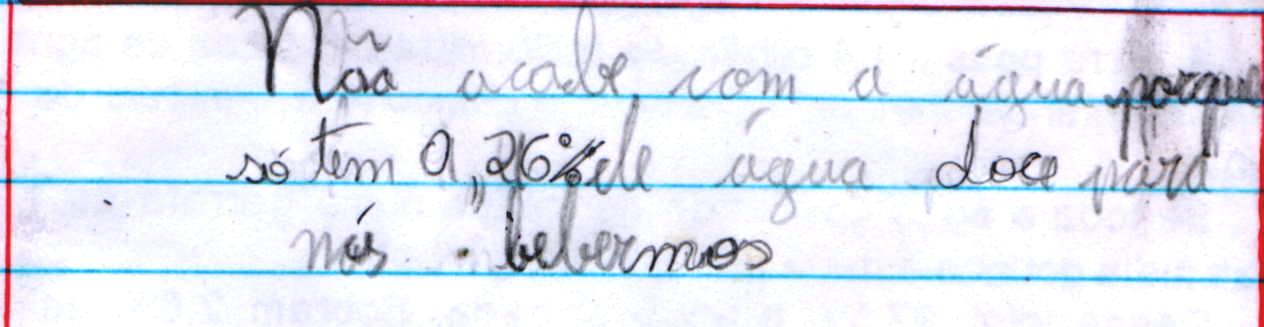 Não acabe com a água porque
só tem 0,26% de água doce para
nós bebermos